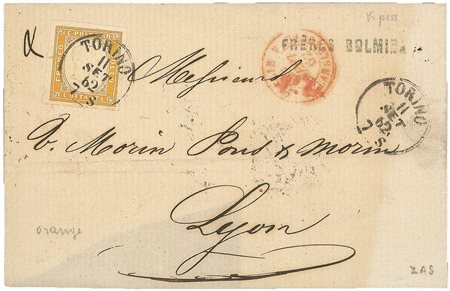 FRÈRES BOLMIDA
TORINO
11
SET
62
7S
TORINO
11
SET
62
7S
Messieurs
V. Morin Pons & Morin
Lyon
orange
ZAS